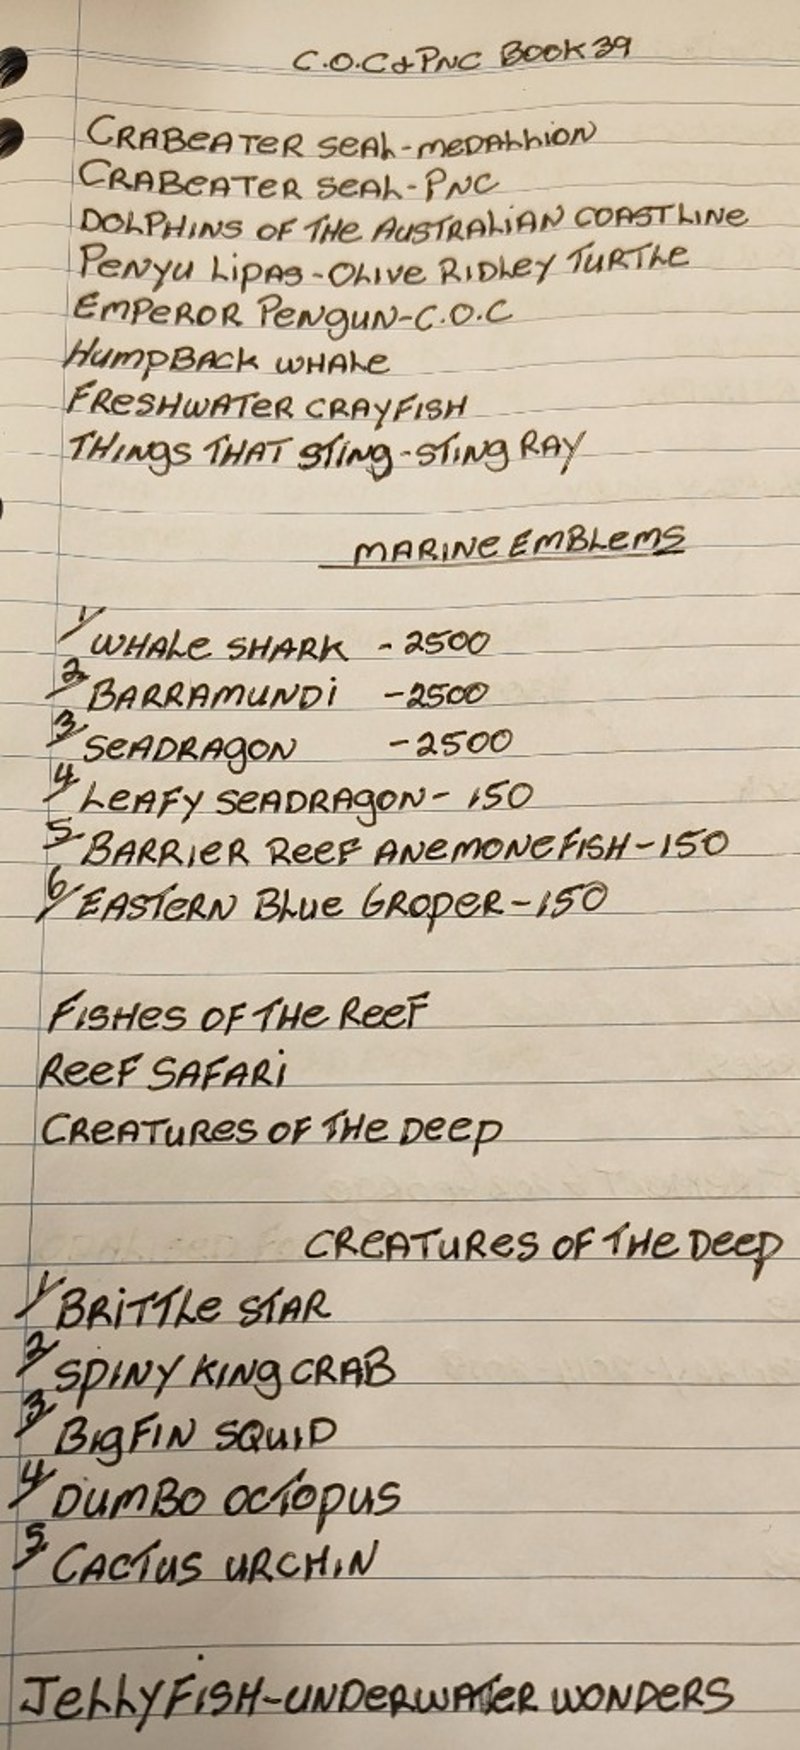 C.O.C & PNC BOOK 39
CRABEATER SEAL-MEDALLION
CRABEATER SEAL-PNC
DOLPHINS OF THE AUSTRALIAN COASTLINE
PENYU LIPAS-OLIVE RIDLEY TURTLE
EMPEROR PENGUN-C.O.C
HUMPBACK WHALE
FRESHWATER CRAYFISH
THINGS THAT STING-STING RAY
MARINE EMBLEMS
1/ WHALE SHARK - 2500
2/ BARRAMUNDI - 2500
3/ SEADRAGON - 2500
4/ LEAFY SEADRAGON - 150
5/ BARRIER REEF ANEMONEFISH - 150
6/ EASTERN BLUE GROPER - 150
FISHES OF THE REEF
REEF SAFARI
CREATURES OF THE DEEP
CREATURES OF THE DEEP
1/ BRITTLE STAR
2/ SPINY KING CRAB
3/ BIGFIN SQUID
4/ DUMBO OCTOPUS
5/ CACTUS URCHIN
JELLYFISH-UNDERWATER WONDERS